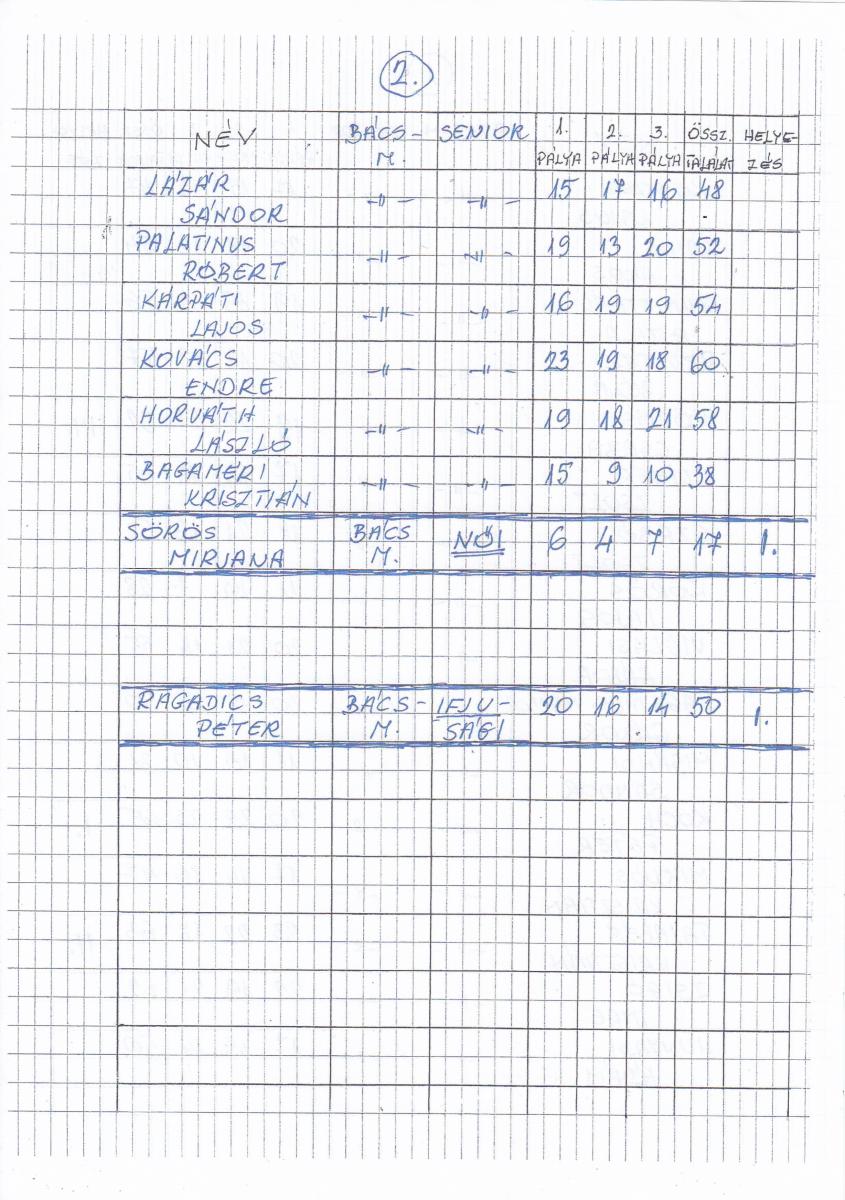 2.
NÉV BÁCS- SENIOR 1. 2. 3. ÖSSZ. HELYE-
M. PÁLYA PÁLYA PÁLYA TALÁLAT ZÉS
LÁZÁR -〃- -〃- 15 17 16 48
SÁNDOR
PALATINUS -〃- -〃- 19 13 20 52
RÓBERT
KÁRPÁTI -〃- -〃- 16 19 19 54
LAJOS
KOVÁCS -〃- -〃- 23 19 18 60
ENDRE
HORVÁTH -〃- -〃- 19 18 21 58
LÁSZLÓ
BAGAMÉRI -〃- -〃- 15 9 10 38
KRISZTIÁN
SÖRÖS BÁCS NŐI 6 4 7 17 I.
MIRJANA M.
RAGADICS BÁCS- IFJU- 20 16 14 50 I.
PÉTER M. SÁGI